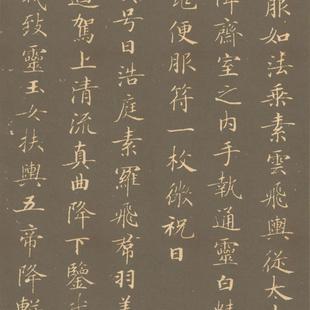 服如法乘素雲飛輿從太
降齋室之内手執通靈白精
便服符一枚微祝曰
号曰浩庭素羅飛帬羽蓋
駕上清流真曲降下鑒
致靈玉女扶輿五帝降軿